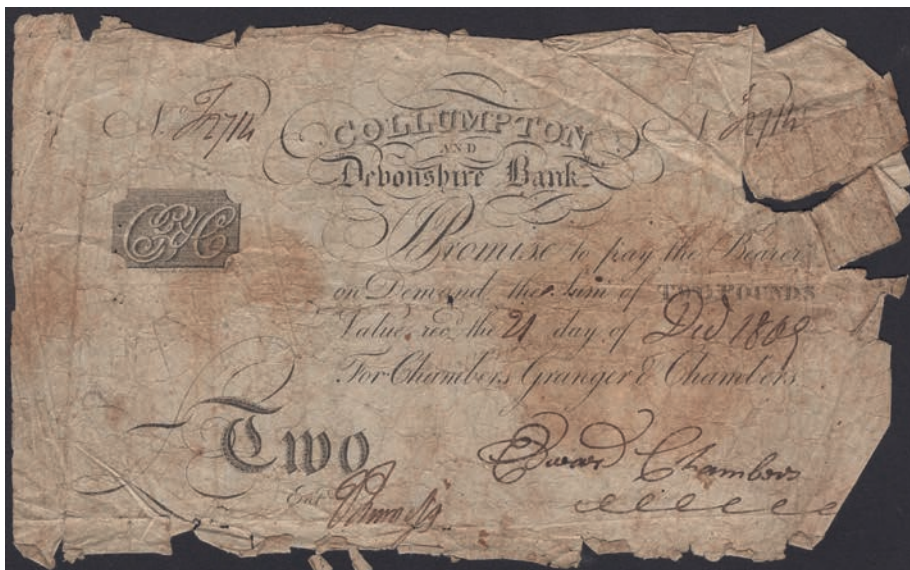 COLLUMPTON
AND
Devonshire Bank.
I Promise to pay the Bearer
on Demand the Sum of TWO POUNDS
Value rec'd the 21 day of Decr 1809
For Chambers Granger & Chambers
Two
Edward Chambers
Entd